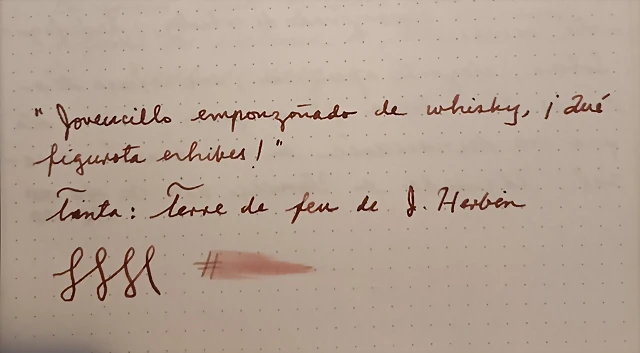 "Jovencillo emponzoñado de whisky, ¡Qué
figurota exhibes!"
Tinta: Terre de feu de J. Herbin
#